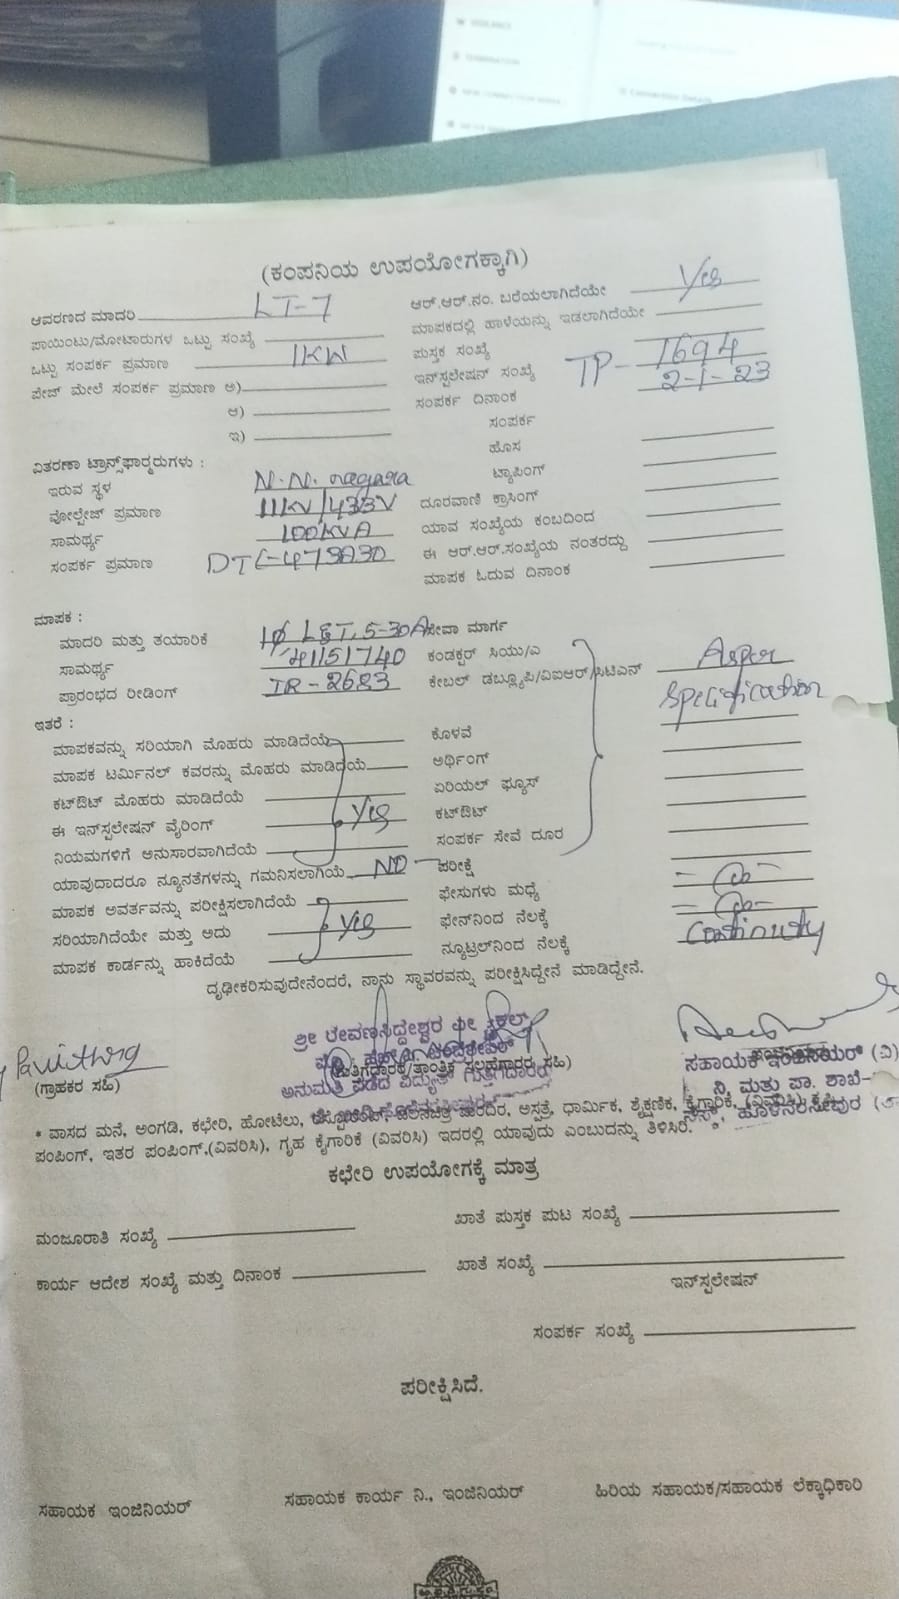 TERMINATION
(ಕಂಪನಿಯ ಉಪಯೋಗಕ್ಕಾಗಿ)
ಆವರಣದ ಮಾದರಿ LT-7 ಆರ್.ಆರ್.ನಂ. ಬರೆಯಲಾಗಿದೆಯೇ Yes
ಪಾಯಿಂಟು/ಮೋಟಾರುಗಳ ಒಟ್ಟು ಸಂಖ್ಯೆ ಮಾಪಕದಲ್ಲಿ ಹಾಳೆಯನ್ನು ಇಡಲಾಗಿದೆಯೇ
ಒಟ್ಟು ಸಂಪರ್ಕ ಪ್ರಮಾಣ 1KW ಪುಸ್ತಕ ಸಂಖ್ಯೆ
ಪೇಜ್ ಮೇಲೆ ಸಂಪರ್ಕ ಪ್ರಮಾಣ ಅ) ಇನ್‌ಸ್ಟಲೇಷನ್ ಸಂಖ್ಯೆ TP-1694
ಆ) ಸಂಪರ್ಕ ದಿನಾಂಕ 2-1-23
ಇ) ಸಂಪರ್ಕ
ಹೊಸ
ವಿತರಣಾ ಟ್ರಾನ್ಸ್‌ಫಾರ್ಮರುಗಳು :
ಇರುವ ಸ್ಥಳ N.N. nagara ಟ್ಯಾಪಿಂಗ್
ವೋಲ್ಟೇಜ್ ಪ್ರಮಾಣ 11KV/433V ದೂರವಾಣಿ ಕ್ರಾಸಿಂಗ್
ಸಾಮರ್ಥ್ಯ 100KVA ಯಾವ ಸಂಖ್ಯೆಯ ಕಂಬದಿಂದ
ಸಂಪರ್ಕ ಪ್ರಮಾಣ ಈ ಆರ್.ಆರ್.ಸಂಖ್ಯೆಯ ನಂತರದ್ದು
ಮಾಪಕ ಓದುವ ದಿನಾಂಕ
ಮಾಪಕ :
ಮಾದರಿ ಮತ್ತು ತಯಾರಿಕೆ 1ϕ L&T, 5-30A ಸೇವಾ ಮಾರ್ಗ
ಸಾಮರ್ಥ್ಯ ಕಂಡಕ್ಟರ್ ಸಿಯು/ಎ
ಪ್ರಾರಂಭದ ರೀಡಿಂಗ್ IR-2623 ಕೇಬಲ್ ಡಬ್ಲ್ಯೂಪಿ/ವಿಐಆರ್/ಸಿಟಿಎಸ್ Asper
specification
ಇತರೆ :
ಮಾಪಕವನ್ನು ಸರಿಯಾಗಿ ಮೊಹರು ಮಾಡಿದೆಯೆ ಕೊಳವೆ
ಮಾಪಕ ಟರ್ಮಿನಲ್ ಕವರನ್ನು ಮೊಹರು ಮಾಡಿದೆಯೆ ಅರ್ಥಿಂಗ್
ಕಟ್‌ಔಟ್ ಮೊಹರು ಮಾಡಿದೆಯೆ ಏರಿಯಲ್ ಫ್ಯೂಸ್
ಈ ಇನ್‌ಸ್ಟಲೇಷನ್ ವೈರಿಂಗ್ Yes ಕಟ್‌ಔಟ್
ನಿಯಮಗಳಿಗೆ ಅನುಸಾರವಾಗಿದೆಯೆ ಸಂಪರ್ಕ ಸೇವೆ ದೂರ
ಯಾವುದಾದರೂ ನ್ಯೂನತೆಗಳನ್ನು ಗಮನಿಸಲಾಗಿಯೆ NO ಪರೀಕ್ಷೆ
ಮಾಪಕ ಅವರ್ತವನ್ನು ಪರೀಕ್ಷಿಸಲಾಗಿದೆಯೆ ಫೇಸುಗಳು ಮಧ್ಯೆ
ಸರಿಯಾಗಿದೆಯೇ ಮತ್ತು ಅದು Yes ಫೇಸ್‌ನಿಂದ ನೆಲಕ್ಕೆ
ಮಾಪಕ ಕಾರ್ಡನ್ನು ಹಾಕಿದೆಯೆ ನ್ಯೂಟ್ರಲ್‌ನಿಂದ ನೆಲಕ್ಕೆ Continuity
ದೃಢೀಕರಿಸುವುದೇನೆಂದರೆ, ನಾನು ಸ್ಥಾವರವನ್ನು ಪರೀಕ್ಷಿಸಿದ್ದೇನೆ ಮಾಡಿದ್ದೇನೆ.
(ಗ್ರಾಹಕರ ಸಹಿ) (ಗುತ್ತಿಗೆದಾರರ/ತಾಂತ್ರಿಕ ಸಲಹಗಾರರ ಸಹಿ) ಸಹಾಯಕ ಇಂಜಿನಿಯರ್ (ವಿ)
ಅನುಮತಿ ಪಡೆದ ವಿದ್ಯುತ್ ಗುತ್ತಿಗೆದಾರರು ನಿ, ಮತ್ತು ಪಾ. ಶಾಖೆ-
* ವಾಸದ ಮನೆ, ಅಂಗಡಿ, ಕಛೇರಿ, ಹೋಟೆಲು, ಆಸ್ಪತ್ರೆ, ಧಾರ್ಮಿಕ, ಶೈಕ್ಷಣಿಕ, ಕೈಗಾರಿಕೆ, (ವಿವರಿಸಿ)
ಪಂಪಿಂಗ್, ಇತರ ಪಂಪಿಂಗ್,(ವಿವರಿಸಿ), ಗೃಹ ಕೈಗಾರಿಕೆ (ವಿವರಿಸಿ) ಇದರಲ್ಲಿ ಯಾವುದು ಎಂಬುದನ್ನು ತಿಳಿಸಿರಿ.
ಕಛೇರಿ ಉಪಯೋಗಕ್ಕೆ ಮಾತ್ರ
ಮಂಜೂರಾತಿ ಸಂಖ್ಯೆ ಖಾತೆ ಪುಸ್ತಕ ಪುಟ ಸಂಖ್ಯೆ
ಕಾರ್ಯ ಆದೇಶ ಸಂಖ್ಯೆ ಮತ್ತು ದಿನಾಂಕ ಖಾತೆ ಸಂಖ್ಯೆ
ಇನ್‌ಸ್ಟಲೇಷನ್
ಸಂಪರ್ಕ ಸಂಖ್ಯೆ
ಪರೀಕ್ಷಿಸಿದೆ.
ಸಹಾಯಕ ಇಂಜಿನಿಯರ್ ಸಹಾಯಕ ಕಾರ್ಯ ನಿ., ಇಂಜಿನಿಯರ್ ಹಿರಿಯ ಸಹಾಯಕ/ಸಹಾಯಕ ಲೆಕ್ಕಾಧಿಕಾರಿ